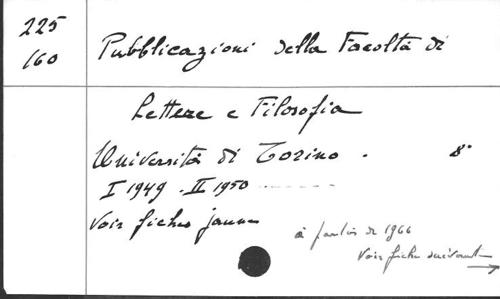 225
160
Pubblicazioni della Facoltà di
Lettere e Filosofia
Università di Torino. 8°
I 1949. II 1950 ........
Voir fiches jaunes
à partir de 1966
Voir fiche suivante